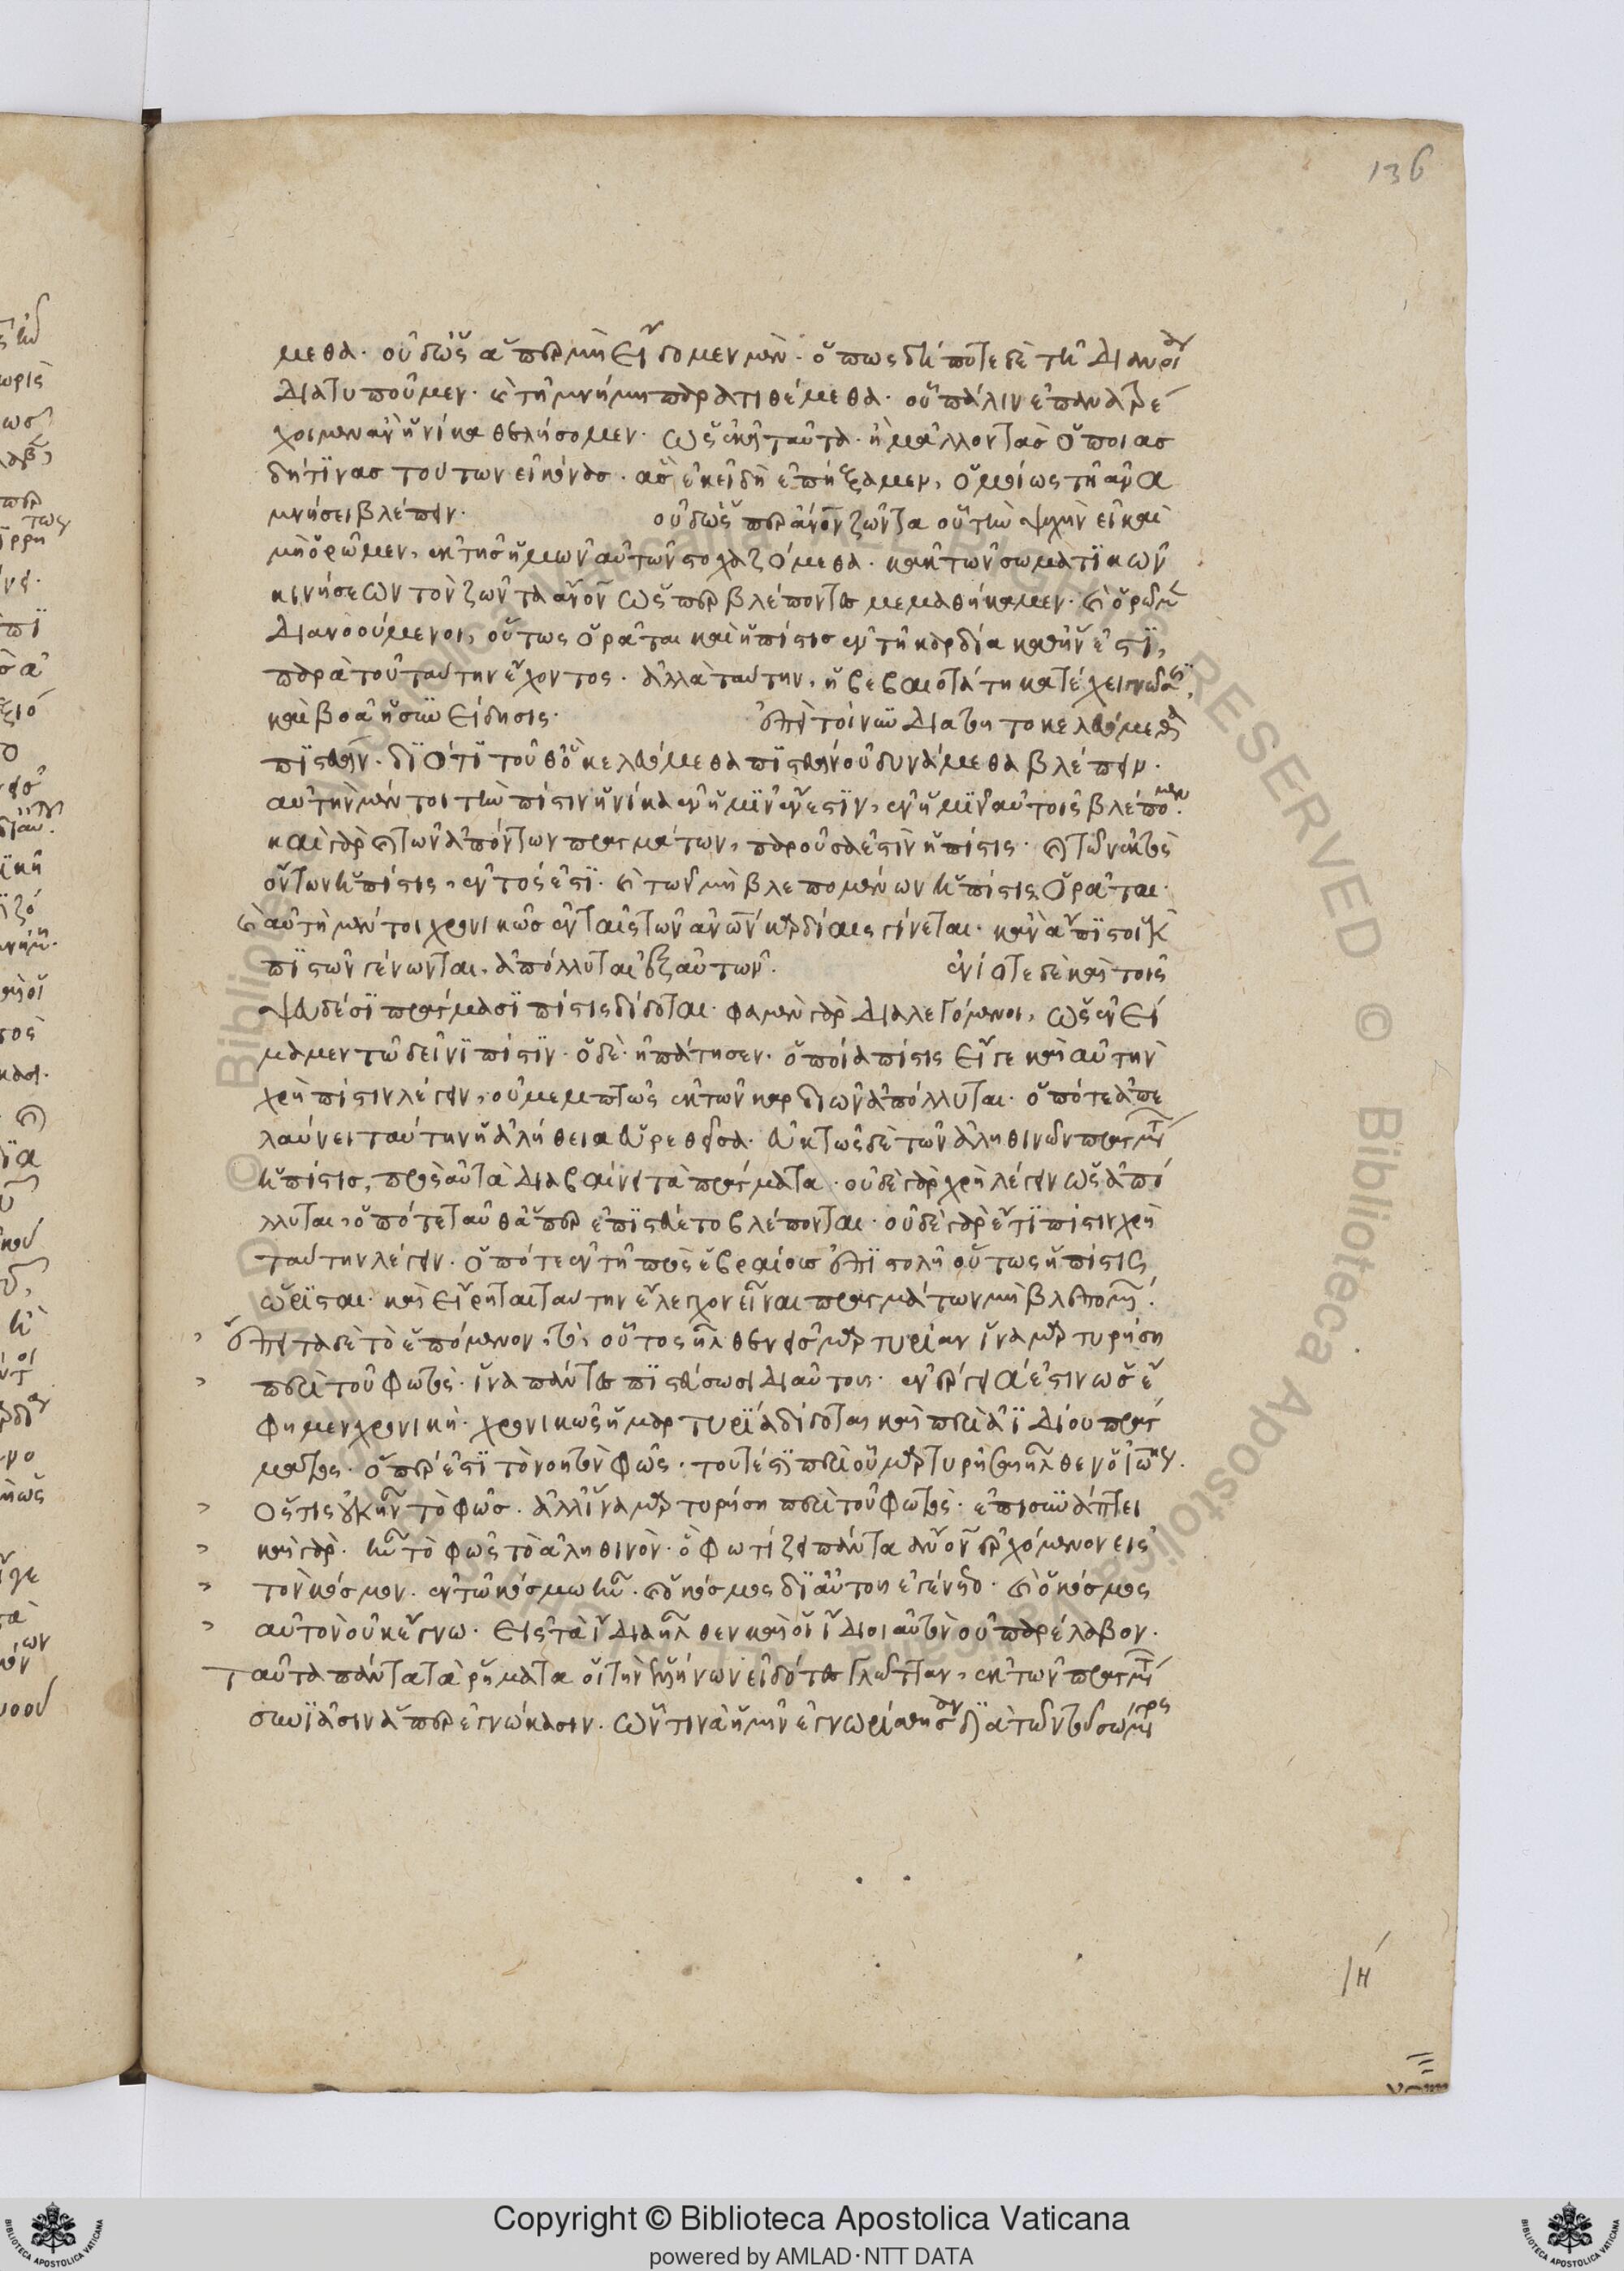 136
μεθα. οὐδ' ὡς ἅπερ μὴ εἴδομεν μὲν. ὅπως δή ποτε δὲ τῇ διανοίᾳ
διατυποῦμεν. καὶ τῇ μνήμῃ παρατιθέμεθα. οὗ πάλιν ἐπανατρέ
χοιμεν ἂν ἡνίκα θελήσομεν. ὡς ἐκεῖ ταῦτα. ἢ μᾶλλον τὰς ὁποίας
δή τινας τούτων εἰκόνας. ἃς ἐκεῖ δὴ ἐπήξαμεν, ὁμοίως τῇ ἀνα
μνήσει βλέπειν. οὐδ' ὥσπερ ἄνον ζῶντα οὗ τὴν ψυχὴν εἰ καὶ
μὴ ὁρῶμεν, ἐκ τῆς ἡμῶν αὐτῶν στοχαζόμεθα. κἀκ τῶν σωματικῶν
κινήσεων τὸν ζῶντα ἄνον ὥσπερ βλέποντες μεμαθήκαμεν. καὶ ὁρῶμεν
διανοούμενοι, οὕτως ὁρᾶται καὶ ἡ πίστις ἐν τῇ καρδίᾳ καθ' ἥν ἐστι,
παρὰ τοῦ ταύτην ἔχοντος. ἀλλὰ ταύτην, ἡ βεβαιοτάτη κατέχει
καὶ βοᾷ ἡ συνείδησις. ἐπεὶ τοίνυν διὰ τοῦτο κελευόμεθα
πιστεύειν. διότι τοῦθ' ὃ κελευόμεθα πιστεύειν οὐ δυνάμεθα βλέπειν.
αὐτὴν μέν τοι τὴν πίστιν ἡνίκα ἐν ἡμῖν ἔνεστιν, ἐν ἡμῖν αὐτοῖς βλέπομεν.
καὶ γὰρ καὶ τῶν ἀπόντων πραγμάτων, παροῦσά ἐστιν ἡ πίστις. καὶ τῶν ἐκτὸς
ὄντων ἡ πίστις, ἐντός ἐστι. καὶ τῶν μὴ βλεπομένων ἡ πίστις ὁρᾶται.
καὶ αὐτὴ μέν τοι χρονικῶς ἐν ταῖς τῶν ἀνων καρδίαις γίνεται. κἂν ἄπιστοι ἐκ
πιστῶν γένωνται, ἀπόλλυται ἐξ αὐτῶν. ἐνίοτε δὲ καὶ τοῖς
ψευδέσι πράγμασι πίστις δίδοται. φαμὲν γὰρ διαλεγόμενοι, ὡς ἐνεί
μαμεν τῷ δεῖνι πίστιν. ὁ δὲ ἠπάτησεν. ὁποία πίστις εἴ γε καὶ αὐτὴν
χρὴ πίστιν λέγειν, οὐ μεμπτῶς ἐκ τῶν καρδιῶν ἀπόλλυται. ὁπότε ἀπε
λαύνει ταύτην ἡ ἀλήθεια εὑρεθεῖσα. εὐκτῶς δὲ τῶν ἀληθινῶν πραγμάτων
ἡ πίστις, πρὸς αὐτὰ διαβαίνει τὰ πράγματα. οὐδὲ γὰρ χρὴ λέγειν ὡς ἀπό
λλυται, ὁπότε ταῦθ' ἅπερ ἐπιστεύετο βλέπονται. οὐδὲ γὰρ ἔτι πίστιν χρὴ
ταύτην λέγειν. ὁπότε ἐν τῇ πρὸς ἑβραίους ἐπιστολῇ οὕτως ἡ πίστις
ὥρισται. καὶ εἴρηται ταύτην ἔλεγχον εἶναι πραγμάτων μὴ βλεπομένων.
ἔπειτα δὲ τὸ ἑπόμενον, τὸ, οὗτος ἦλθεν εἰς μαρτυρίαν ἵνα μαρτυρήσῃ
περὶ τοῦ φωτὸς. ἵνα πάντες πιστεύσωσι δι' αὐτοῦ. ἐνέργειά ἐστιν ὡς ἔ
φημεν χρονική. χρονικῶς ἡ μαρτυρία δίδοται καὶ περὶ ἀϊδίου πράγ
ματος. ὅπερ ἐστὶ τὸ νοητὸν φῶς. τουτέστι περὶ οὗ μαρτυρῆσαι ἦλθεν ὁ ἰωάννης.
ὅστις οὐκ ἦν τὸ φῶς. ἀλλ' ἵνα μαρτυρήσῃ περὶ τοῦ φωτὸς. ἐπισυνάπτει
καὶ γὰρ. ἦν τὸ φῶς τὸ ἀληθινὸν. ὃ φωτίζει πάντα ἄνον ἐρχόμενον εἰς
τὸν κόσμον. ἐν τῷ κόσμῳ ἦν. καὶ ὁ κόσμος δι' αὐτοῦ ἐγένετο. καὶ ὁ κόσμος
αὐτὸν οὐκ ἔγνω. εἰς τὰ ἴδια ἦλθεν καὶ οἱ ἴδιοι αὐτὸν οὐ παρέλαβον.
ταῦτα πάντα τὰ ῥήματα οἱ τὴν ἑλλήνων εἰδότες γλῶτταν, ἐκ τῶν πραγμάτων
συνιᾶσιν ἅπερ ἐγνώκασιν. ὧν τινὰ ἡμῖν ἐγνωρίσθησαν διὰ τῶν τοῦ σώματος
ΙΗ